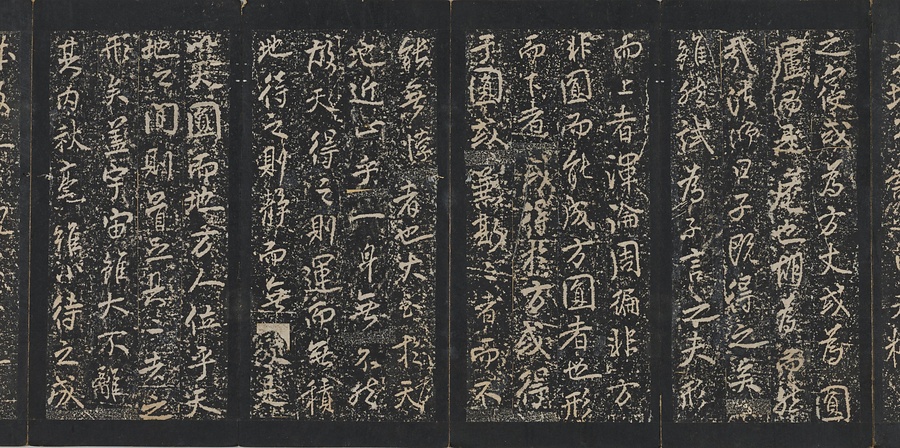 之或為方丈或為圓
廬也胡為而然
哉曰子既得之矣
雖然試為子言之夫形
而上者渾淪周徧非方
非圓而能成方圓者也形
而下者或得於方或得
于圓或兼斯二者而不
能無者也大至於天
地近止乎一身無不然
故天得之則運而無積
地得之則靜而無是
以天圓而地方人位乎天
地之間則首足具一者之
形矣蓋宇宙雖大不離
其内秋毫雖小待之成